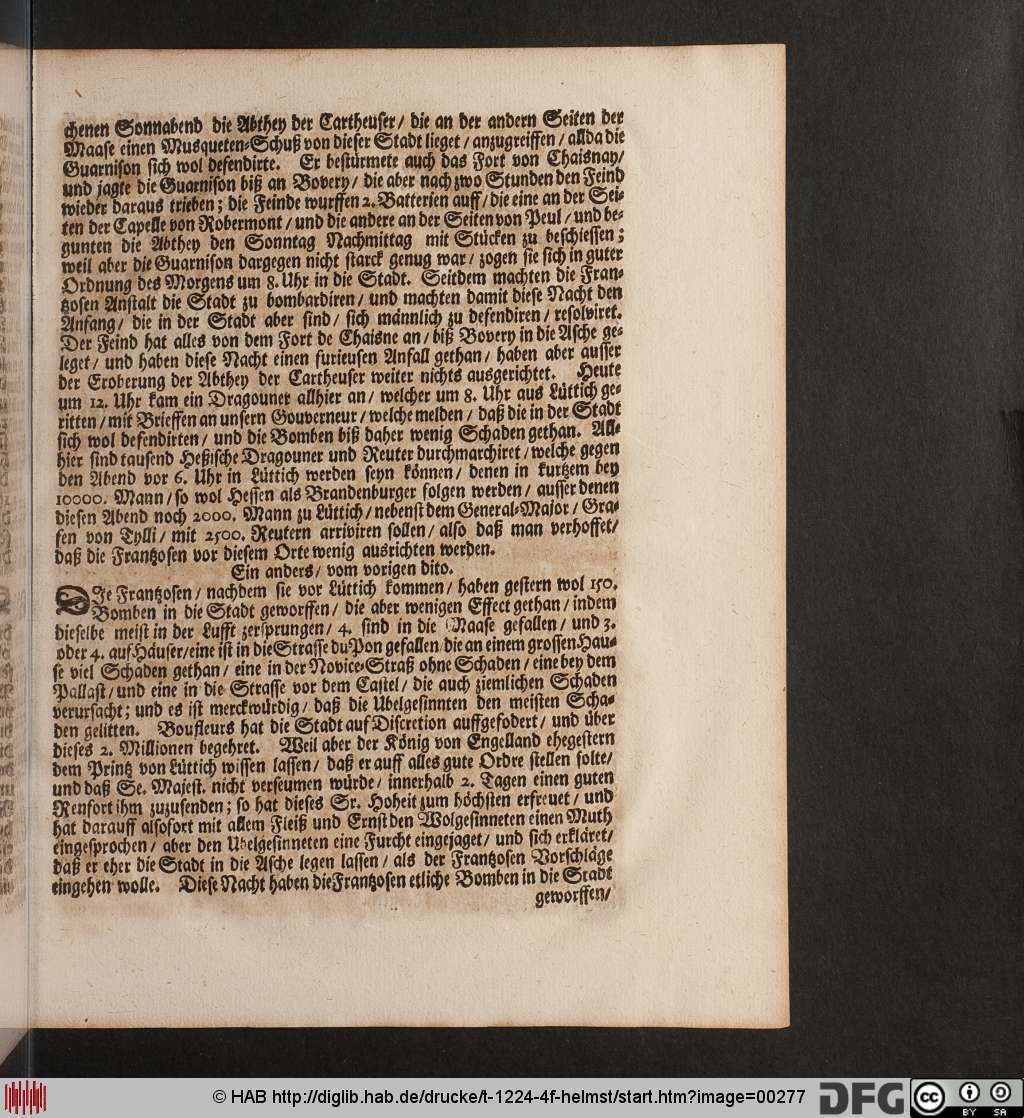 chenen Sonnabend die Abthey der Cartheuser/ die an der andern Seiten der
Maase einen Musqueten-Schuß von dieser Stadt lieget/ anzugreiffen/ allda die
Guarnison sich wol defendirte. Er bestürmete auch das Fort von Chaisnay/
und jagte die Guarnison biß an Bovery/ die aber nach zwo Stunden den Feind
wieder daraus trieben; die Feinde wurffen 2. Batterien auff/ die eine an der Sei-
ten der Capelle von Robermont/ und die andere an der Seiten von Peul/ und be-
gunten die Abthey den Sonntag Nachmittag mit Stücken zu beschiessen;
weil aber die Guarnison dargegen nicht starck genug war/ zogen sie sich in guter
Ordnung des Morgens um 8. Uhr in die Stadt. Seitdem machten die Fran-
tzosen Anstalt die Stadt zu bombardiren/ und machten damit diese Nacht den
Anfang/ die in der Stadt aber sind/ sich männlich zu defendiren/ resolviret.
Der Feind hat alles von dem Fort de Chaisne an/ biß Bovery in die Asche ge-
leget/ und haben diese Nacht einen furieusen Anfall gethan/ haben aber ausser
der Eroberung der Abthey der Cartheuser weiter nichts ausgerichtet. Heute
um 12. Uhr kam ein Dragouner allhier an/ welcher um 8. Uhr aus Lüttich ge-
ritten/ mit Brieffen an unsern Gouverneur/ welche melden/ daß die in der Stadt
sich wol defendirten/ und die Bomben biß daher wenig Schaden gethan. All-
hier sind tausend Heßische Dragouner und Reuter durchmarchiret/ welche gegen
den Abend vor 6. Uhr in Lüttich werden seyn können/ denen in kurtzem bey
10000. Mann/ so wol Hessen als Brandenburger folgen werden/ ausser denen
diesen Abend noch 2000. Mann zu Lüttich/ nebenst dem General-Major/ Gra-
fen von Tylli/ mit 2500. Reutern arriviren sollen/ also daß man verhoffet/
daß die Frantzosen vor diesem Orte wenig ausrichten werden.
Ein anders/ vom vorigen dito.
DJe Frantzosen/ nachdem sie vor Lüttich kommen/ haben gestern wol 150.
Bomben in die Stadt geworffen/ die aber wenigen Effect gethan/ indem
dieselbe meist in der Lufft zersprungen/ 4. sind in die Maase gefallen/ und 3.
oder 4. auf Häuser/ eine ist in die Strasse du Pon gefallen/ die an einem grossen Hau-
se viel Schaden gethan/ eine in der Novice-Straß ohne Schaden/ eine bey dem
Pallast/ und eine in die Strasse vor dem Castel/ die auch ziemlichen Schaden
verursacht; und es ist merckwürdig/ daß die Ubelgesinnten den meisten Scha-
den gelitten. Boufleurs hat die Stadt auf Discretion auffgefodert/ und über
dieses 2. Millionen begehret. Weil aber der König von Engelland ehegestern
dem Printz von Lüttich wissen lassen/ daß er auff alles gute Ordre stellen solte/
und daß Se. Majest. nicht verseumen würde/ innerhalb 2. Tagen einen guten
Renfort ihm zuzusenden; so hat dieses Sr. Hoheit zum höchsten erfreuet/ und
hat darauff alsofort mit allem Fleiß und Ernst den Wolgesinneten einen Muth
eingesprochen/ aber den Ubelgesinneten eine Furcht eingejaget/ und sich erkläret/
daß er eher die Stadt in die Asche legen lassen/ als der Frantzosen Vorschläge
eingehen wolle. Diese Nacht haben die Frantzosen etliche Bomben in die Stadt
geworffen/
© HAB http://diglib.hab.de/drucke/t-1224-4f-helmst/start.htm?image=00277
DFG
cc
BY SA